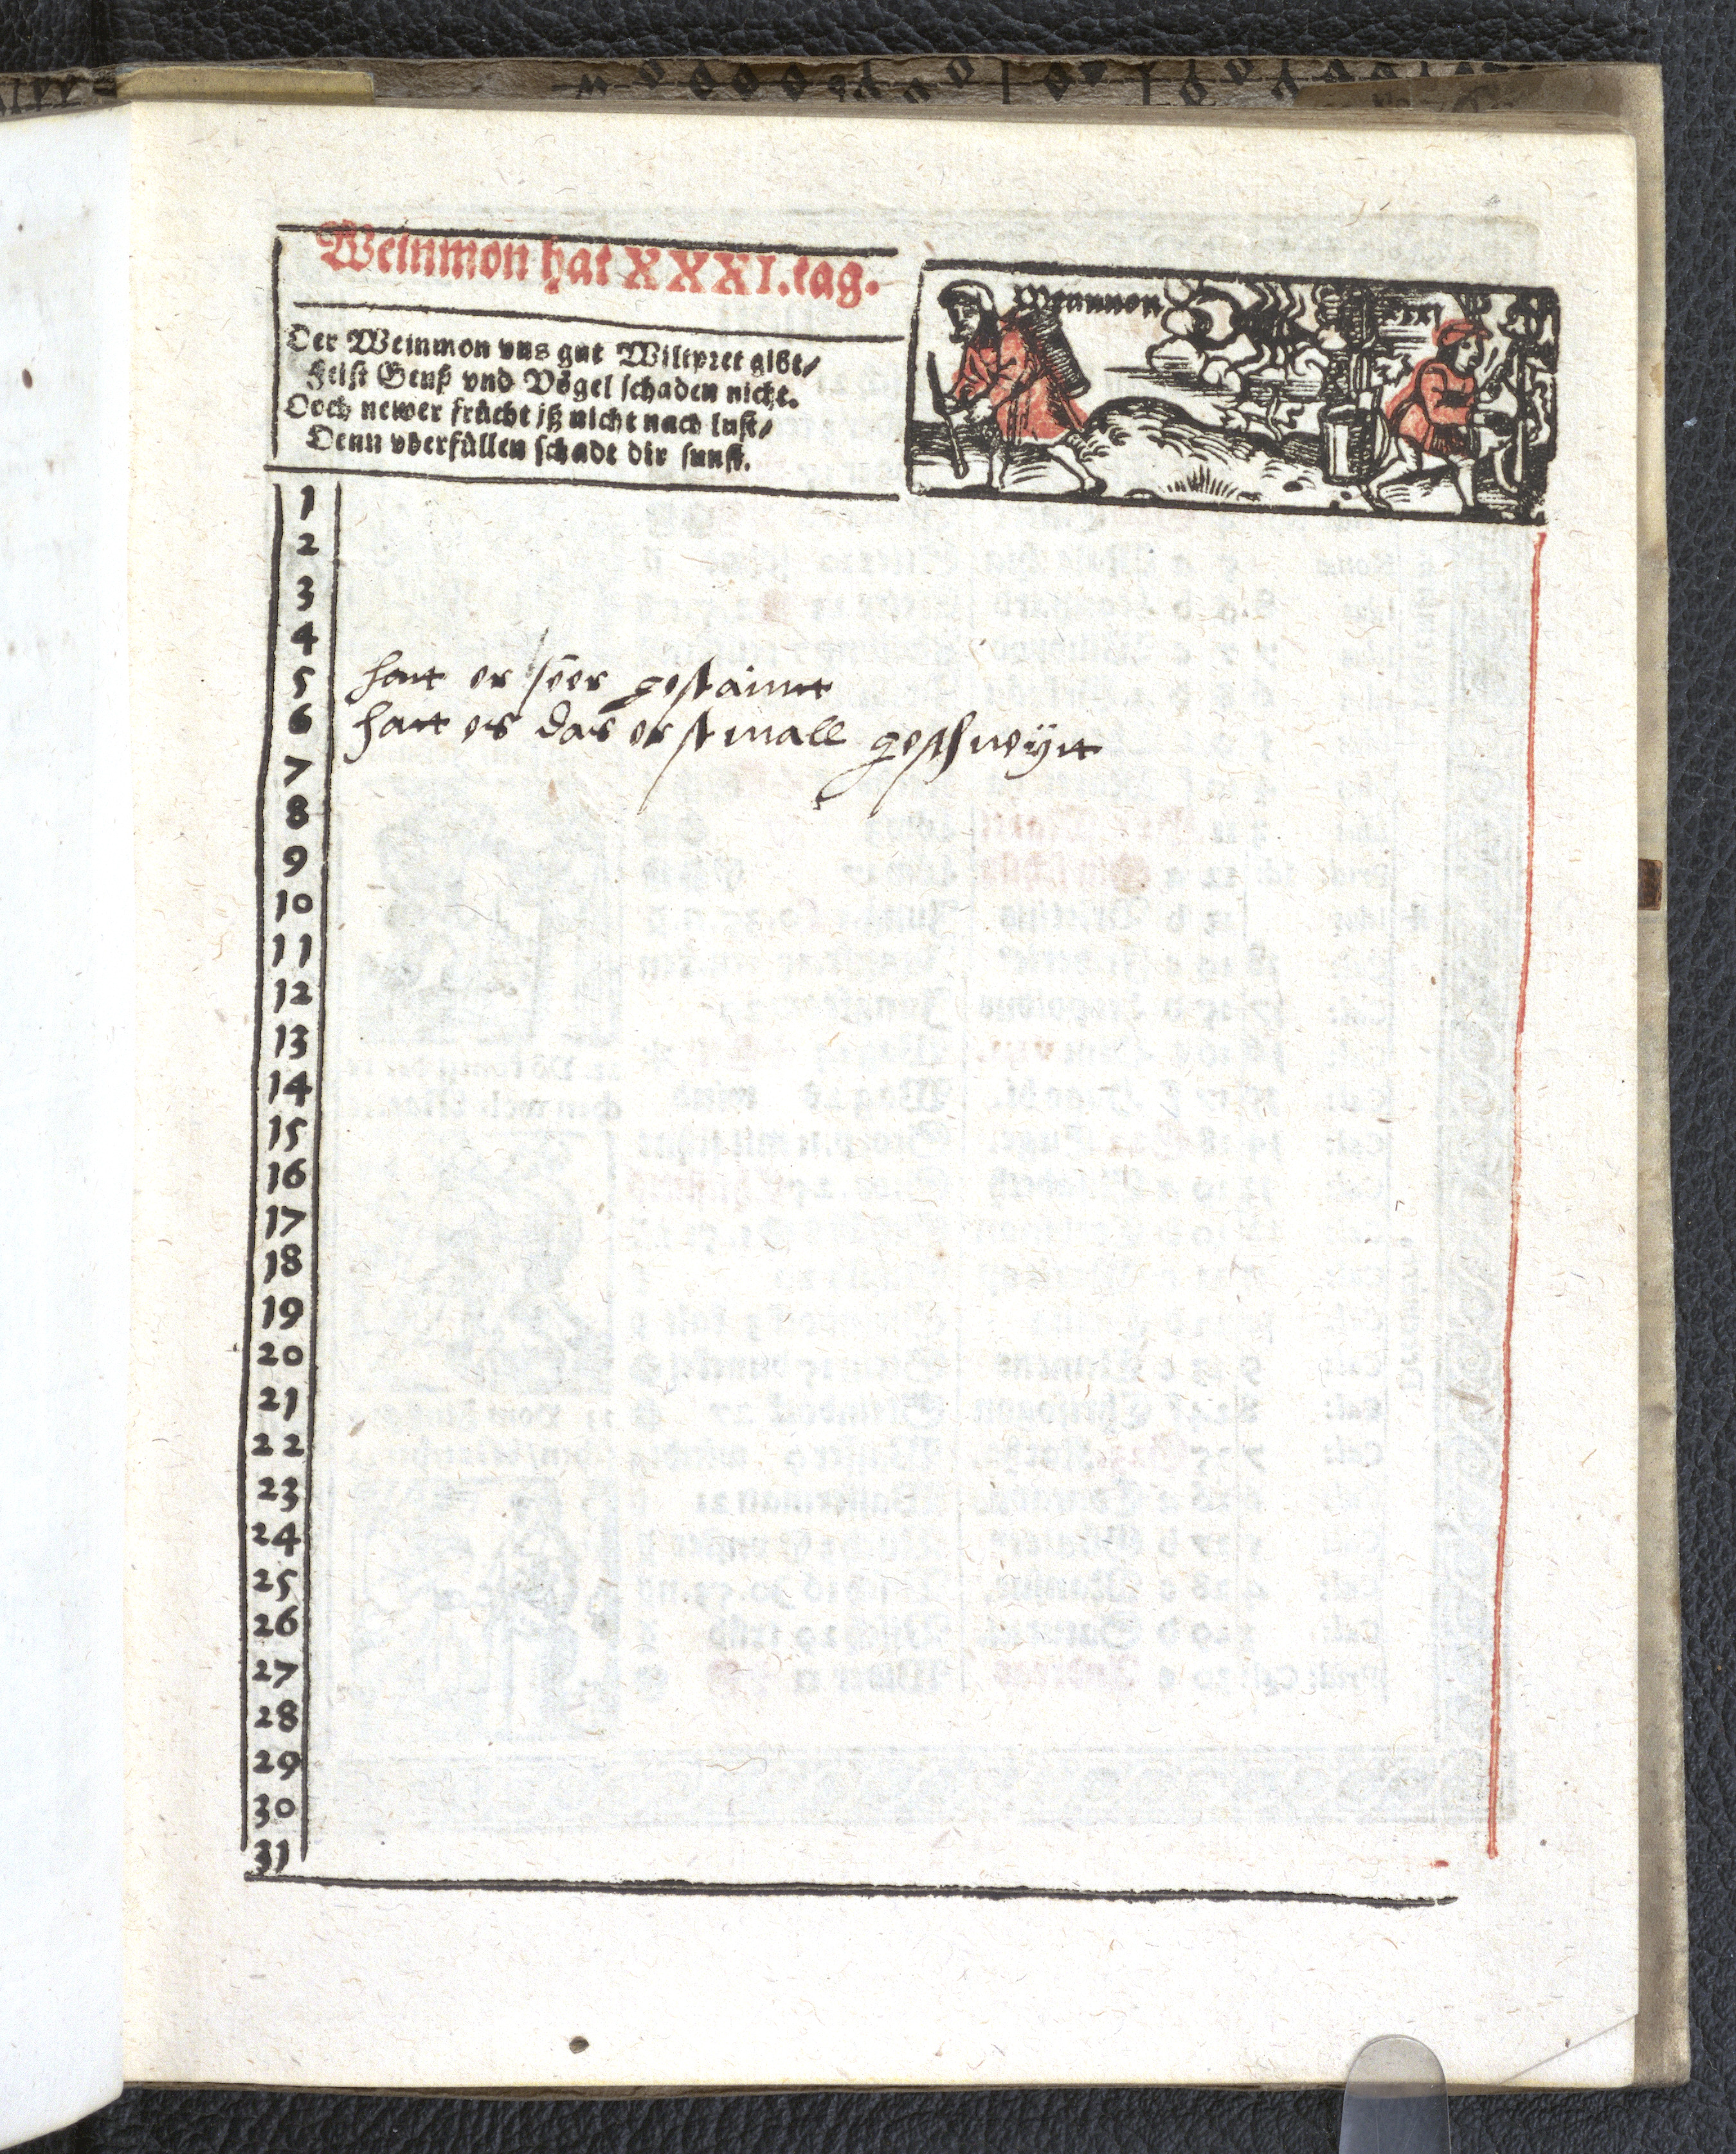 Weinmon hat XXXI. tag.
Der Weinmon vns gut Wiltpret gibt/
Feist Genß vnd Vögel schaden nicht.
Doch newer frücht jß nicht nach lust/
Denn vberfüllen schadt dir sunst.
Weinmon XXXI
1
2
3
4
5 hatt er seer
6 hatt es das erstmall geschneytt
7
8
9
10
11
12
13
14
15
16
17
18
19
20
21
22
23
24
25
26
27
28
29
30
31